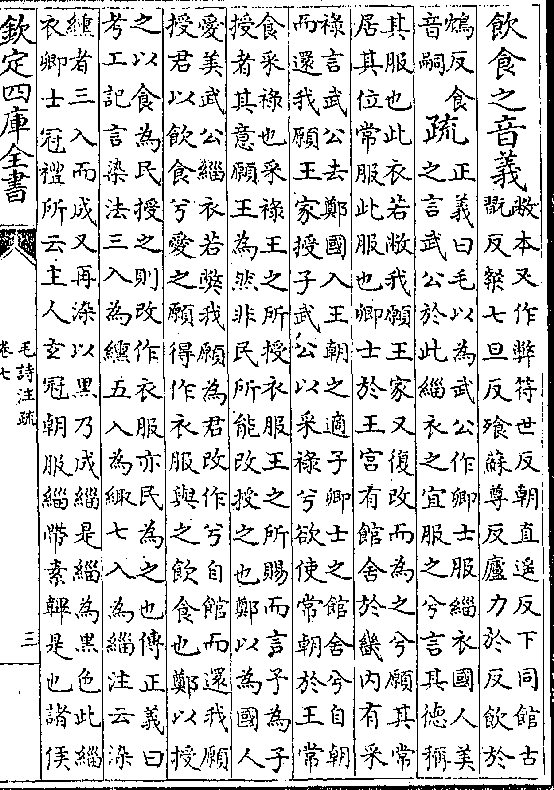 飲食之音義敝本又作弊符世反朝直遥反下同館古
翫反粲七旦反飱蘇尊反廬力於反飲於
鴆反食
音嗣
疏正義曰毛以為武公作卿士服緇衣國人美
之言武公於此緇衣之宜服之兮言其德稱
其服也此衣若敝我願王家又復改而為之兮願其常
居其位常服此服也卿士於王宫有館舍於畿内有采
禄言武公去鄭國入王朝之適子卿士之館舍兮自朝
而還我願王家授子武公以采禄兮欲使常朝於王常
食采禄也采禄王之所授衣服王之所賜而言予為子
授者其意願王為然非民所能改授之也鄭以為國人
愛美武公緇衣若弊我願為君改作兮自館而還我願
授君以飲食兮愛之願得作衣服與之飲食也鄭以授
之以食為民授之則改作衣服亦民為之也傳正義曰
考工記言染法三入為纁五入為緅七入為緇注云染
纁者三入而成又再染以黒乃成緇是緇為黒色此緇
衣卿士冠禮所云主人玄冠朝服緇帶素韠是也諸侯
欽定四庫全書
毛詩注疏
卷七
三